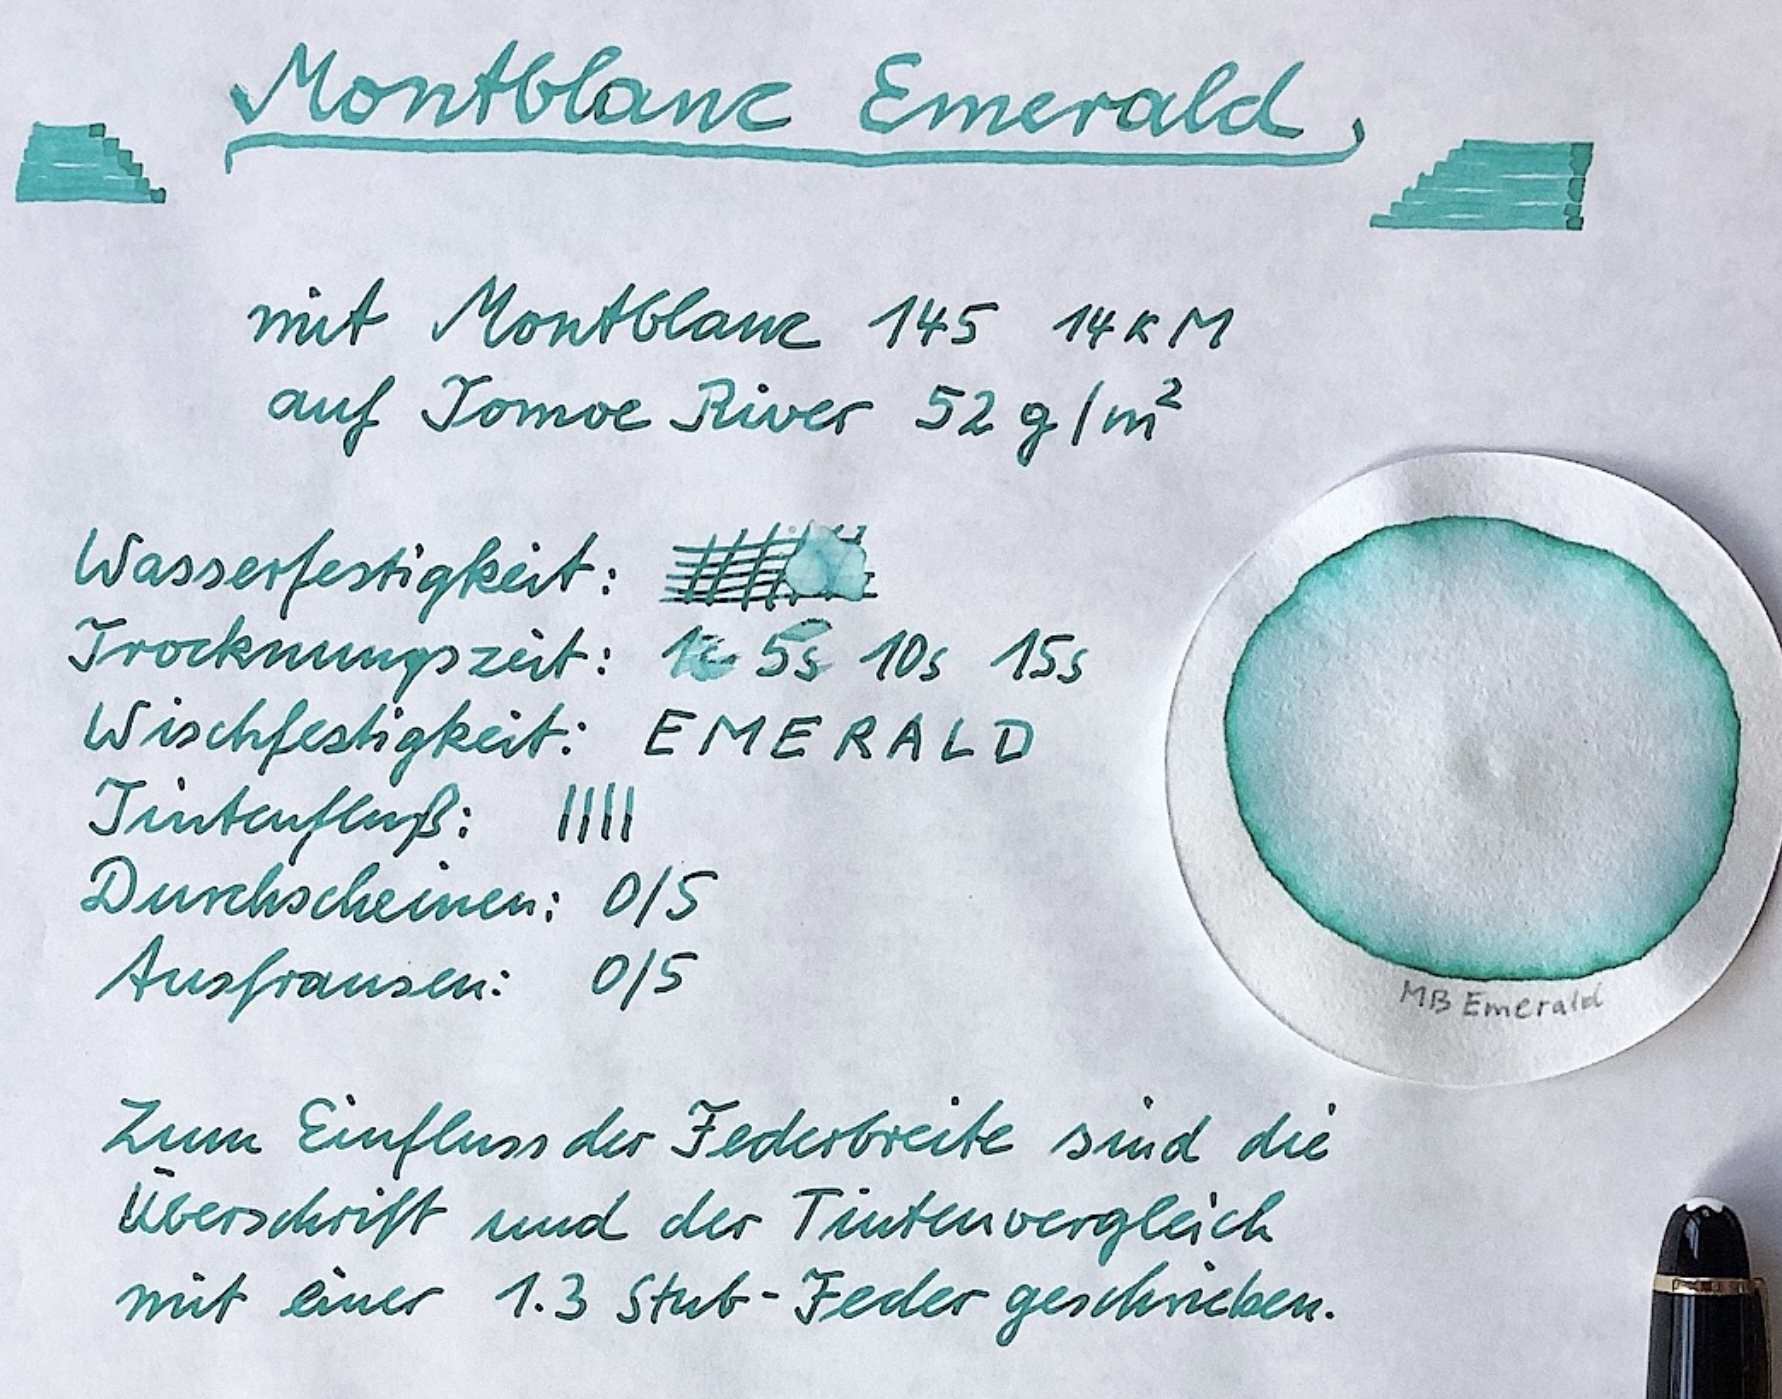 Montblanc Emerald
mit Montblanc 145 14K M
auf Tomoe River 52 g/m²
Wasserfestigkeit:
Trocknungszeit: 1s 5s 10s 15s
Wischfestigkeit: EMERALD
Tintenfluß: ||||
Durchscheinen: 0/5
Ausfransen: 0/5
MB Emerald
Zum Einfluss der Federbreite sind die
Überschrift und der Tintenvergleich
mit einer 1.3 Stub-Feder geschrieben.